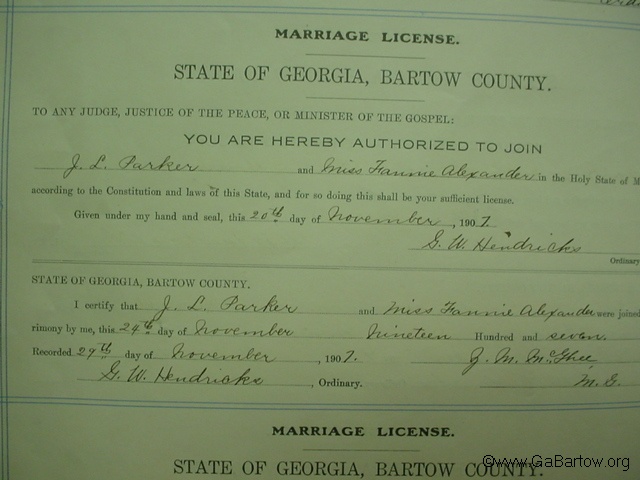 MARRIAGE LICENSE.
STATE OF GEORGIA, BARTOW COUNTY.
TO ANY JUDGE, JUSTICE OF THE PEACE, OR MINISTER OF THE GOSPEL:
YOU ARE HEREBY AUTHORIZED TO JOIN
J. L. Parker and Miss Fannie Alexander in the Holy State of M
according to the Constitution and laws of this State, and for so doing this shall be your sufficient license.
Given under my hand and seal, this 20th day of November, 1907.
G. W. Hendricks
Ordinary
STATE OF GEORGIA, BARTOW COUNTY.
I certify that J. L. Parker and Miss Fannie Alexander were joined
rimony by me, this 24th day of November Nineteen Hundred and seven.
Recorded 29th day of November, 1907. J. M. McGhee
G. W. Hendricks, Ordinary. M. G.
MARRIAGE LICENSE.
STATE OF GEORGIA, BARTOW COUNTY.
©www.GaBartow.org